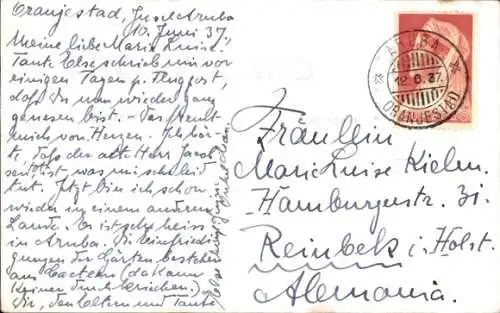 Oranjestad, Insel Aruba
10. Juni 37.
Meine liebe Marie Luise!
Tante Else schrieb mir vor
einigen Tagen p. Flugpost,
daß Du nun wieder ganz
genesen bist. - Das freut
mich von Herzen. Ich hör-
te, daß der alte Herr Jacob
sen tot ist, was mir sehr leid
tut. Jetzt bin ich schon
wieder in einem anderen
Lande. Es ist sehr heiss
in Aruba. Die Einfriedi-
gungen der Gärten bestehen
aus Cacteen (da kann
keiner durchkriechen.)
Dir, den Eltern und Tante
Else
Onkel
ARUBA
12.6.37.
ORANJESTAD
Fräulein
Marie Luise Kielm.
Hamburgerstr. 31.
Reinbek i. Holst.
Alemania.